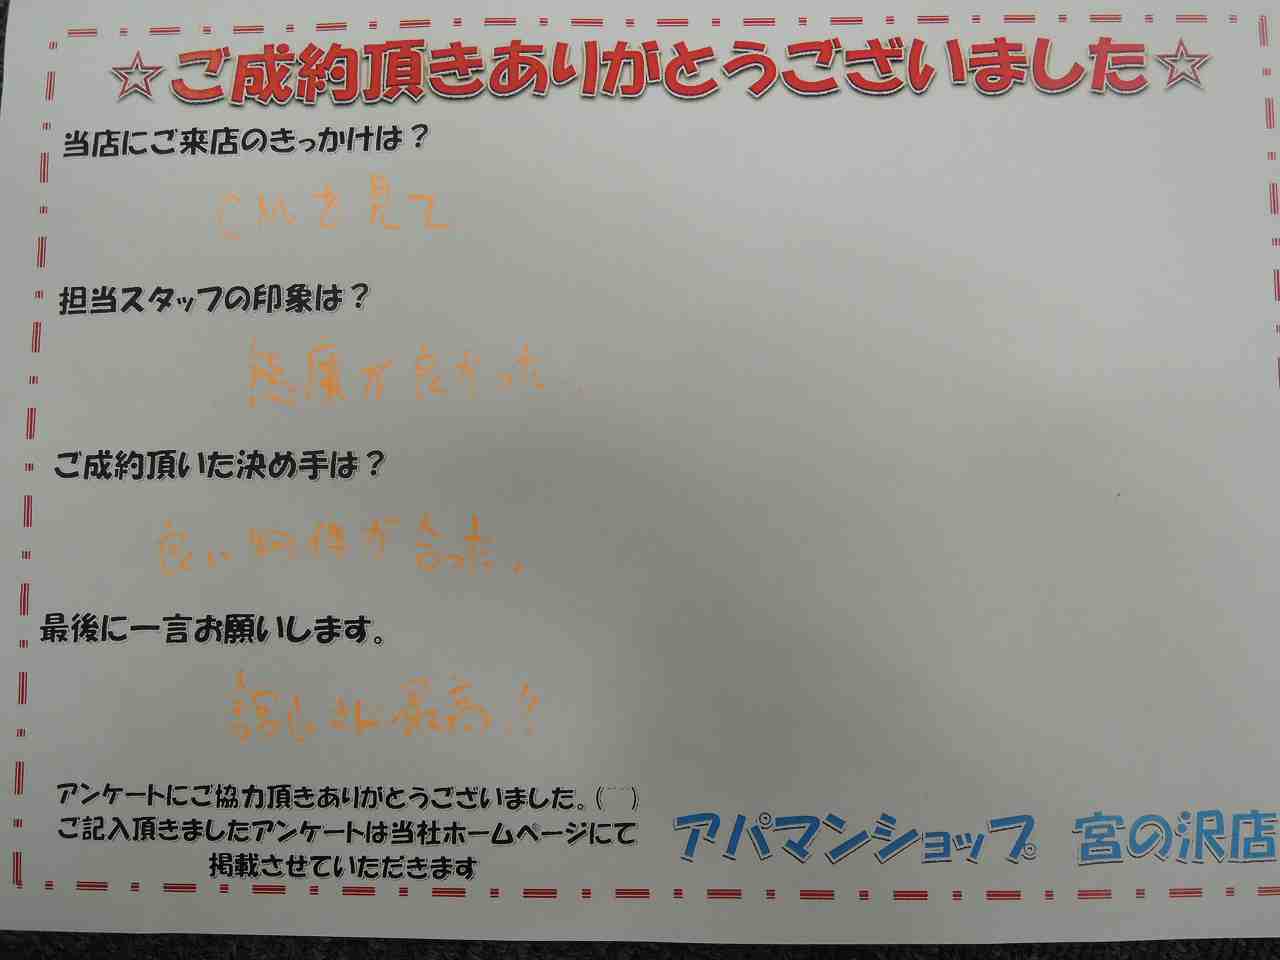 ☆ご成約頂きありがとうございました☆
当店にご来店のきっかけは？
CMを見て
担当スタッフの印象は？
態度が良かった
ご成約頂いた決め手は？
良い物件が合った。
最後に一言お願いします。
さん最高!!
アンケートにご協力頂きありがとうございました。(⌒⌒)
ご記入頂きましたアンケートは当社ホームページにて
掲載させていただきます
アパマンショップ 宮の沢店